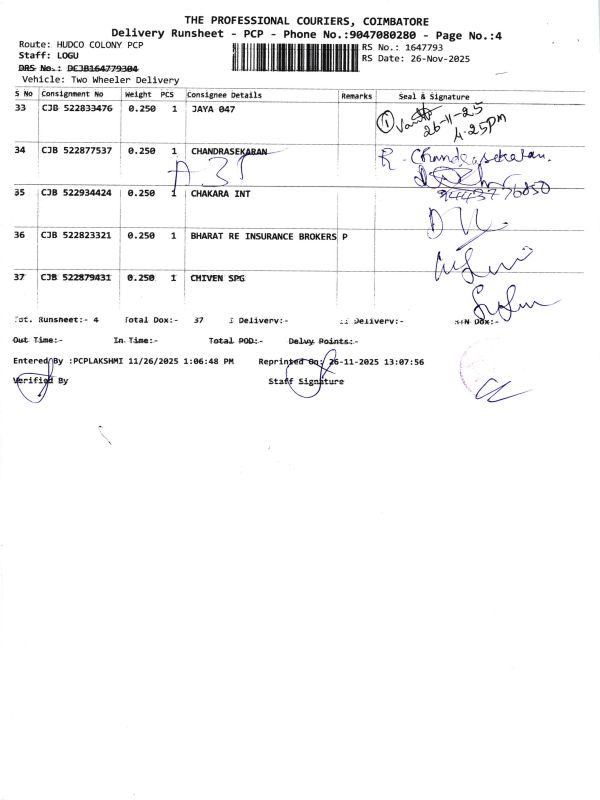 THE PROFESSIONAL COURIERS, COIMBATORE
Delivery Runsheet - PCP - Phone No.:9047080280 - Page No.:4
Route: HUDCO COLONY PCP
RS No.: 1647793
Staff: LOGU
RS Date: 26-Nov-2025
DRS No.: DCJB164779304
Vehicle: Two Wheeler Delivery
S No Consignment No Weight PCS Consignee Details Remarks Seal & Signature
33 CJB 522833476 0.250 1 JAYA 047
1
26-11-25
4.25PM
34 CJB 522877537 0.250 1 CHANDRASEKARAN
R. Chandrasekaran.
35 CJB 522934424 0.250 1 CHAKARA INT
36 CJB 522823321 0.250 1 BHARAT RE INSURANCE BROKERS P
37 CJB 522879431 0.250 1 CHIVEN SPG
Tot. Runsheet:- 4 Total Dox:- 37 Delivery:- Delivery:- Dox:-
Out Time:- In Time:- Total POD:- Delvy Points:-
Entered By :PCPLAKSHMI 11/26/2025 1:06:48 PM Reprinted On: 26-11-2025 13:07:56
Verified By Staff Signature